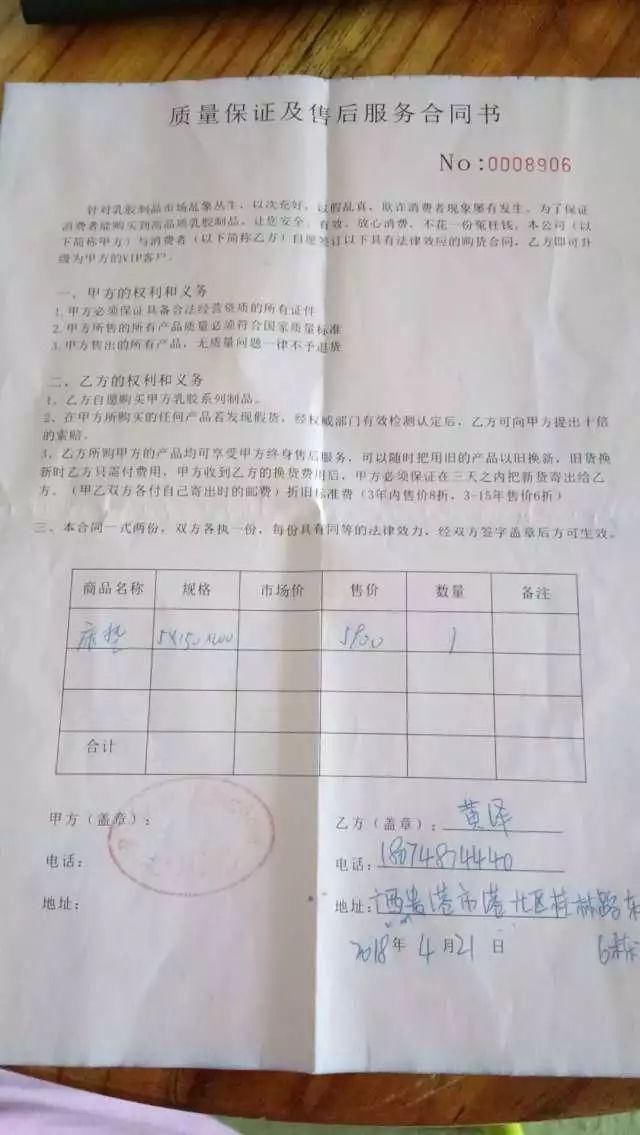 质量保证及售后服务合同书
No:0008906
针对乳胶制品市场乱象丛生，以次充好，以假乱真，欺诈消费者现象屡有发生。为了保证
消费者能购买到高品质乳胶制品，让您安全、有效、放心消费，不花一份冤枉钱，本公司（以
下简称甲方）与消费者（以下简称乙方）自愿签订以下具有法律效应的购货合同，乙方即可升
级为甲方的VIP客户。
一、甲方的权利和义务
1.甲方必须保证具备合法经营资质的所有证件
2.甲方所售的所有产品质量必须符合国家质量标准
3.甲方售出的所有产品，无质量问题一律不予退货
二、乙方的权利和义务
1、乙方自愿购买甲方乳胶系列制品。
2、在甲方所购买的任何产品若发现假货，经权威部门有效检测认定后，乙方可向甲方提出十倍
的索赔。
3、乙方所购甲方的产品均可享受甲方终身售后服务，可以随时把用旧的产品以旧换新，旧货换
新时乙方只需付费用，甲方收到乙方的换货费用后，甲方必须保证在三天之内把新货寄出给乙
方。（甲乙双方各付自己寄出时的邮费）折旧标准费（3年内售价8折，3-15年售价6折）
三、本合同一式两份，双方各执一份，每份具有同等的法律效力，经双方签字盖章后方可生效。
商品名称 规格 市场价 售价 数量 备注
床垫 5X150X200 5900 1
合计
甲方（盖章）： 乙方（盖章）：黄泽
电话： 电话：18074874440
地址： 地址：广西贵港市港北区桂林路东
2018年4月21日